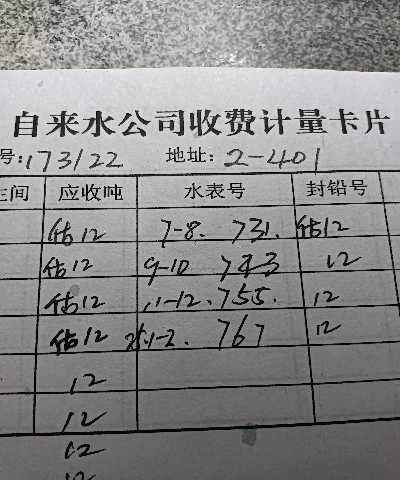 自来水公司收费计量卡片
号:173122 地址:2-401
间 应收吨 水表号 封铅号
估12 7-8. 731. 估12
估12 9-10 743 12
估12 11-12. 755. 12
估12 1-2. 767 12
12
12
12
12